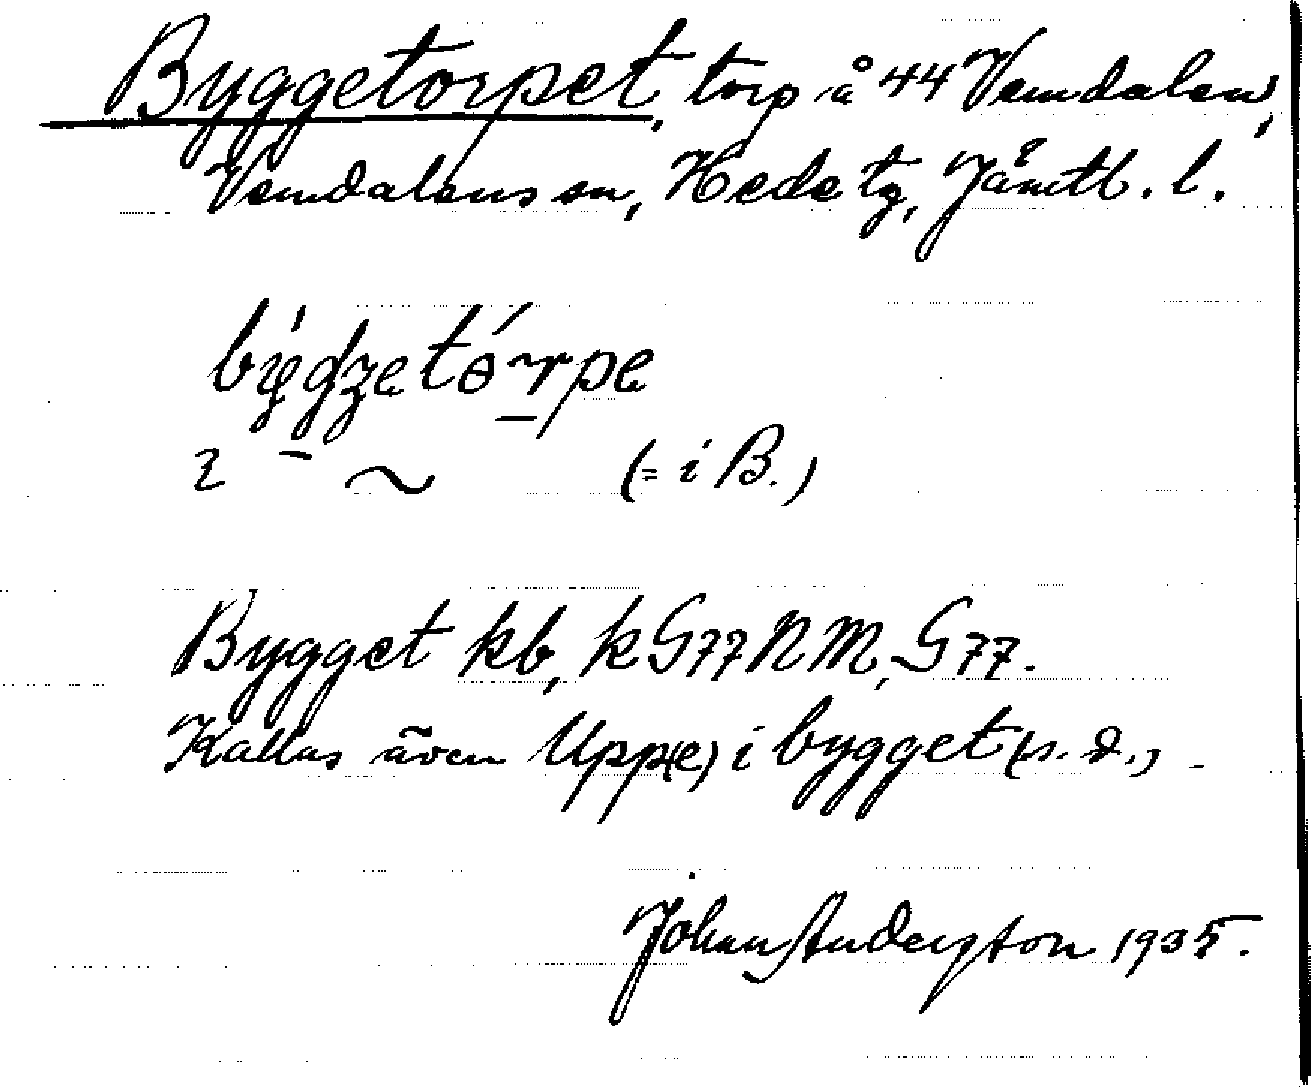 Byggetorpet, torp å 44 Vemdalen,
Vemdalens sn, Hede tg, Jämtl. l.
(= i B.)
Bygget kb, k G77 NM, G77.
Kallas även Upp(e) i bygget (s. d.)
Johan Anderzton 1935.